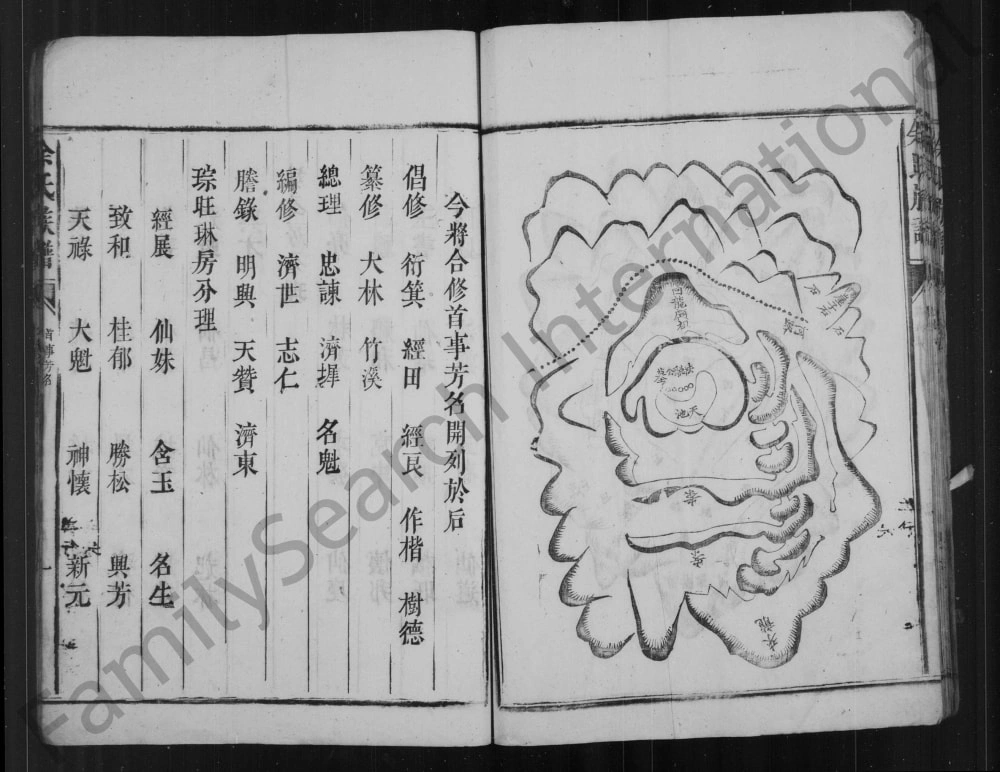 天池
案
案
今將合修首事芳名開列於后
倡修 衍箕 經田 經良 作楷 樹德
纂修 大林 竹溪
總理 忠諫 濟擇 名魁
編修 濟世 志仁
謄錄 明興 天贊 濟東
琮旺琳房分理
經展 仙妹 含玉 名生
致和 桂郁 勝松 興芳
天祿 大魁 神懷 新元
余氏族譜
首事芳名
一
FamilySearch International